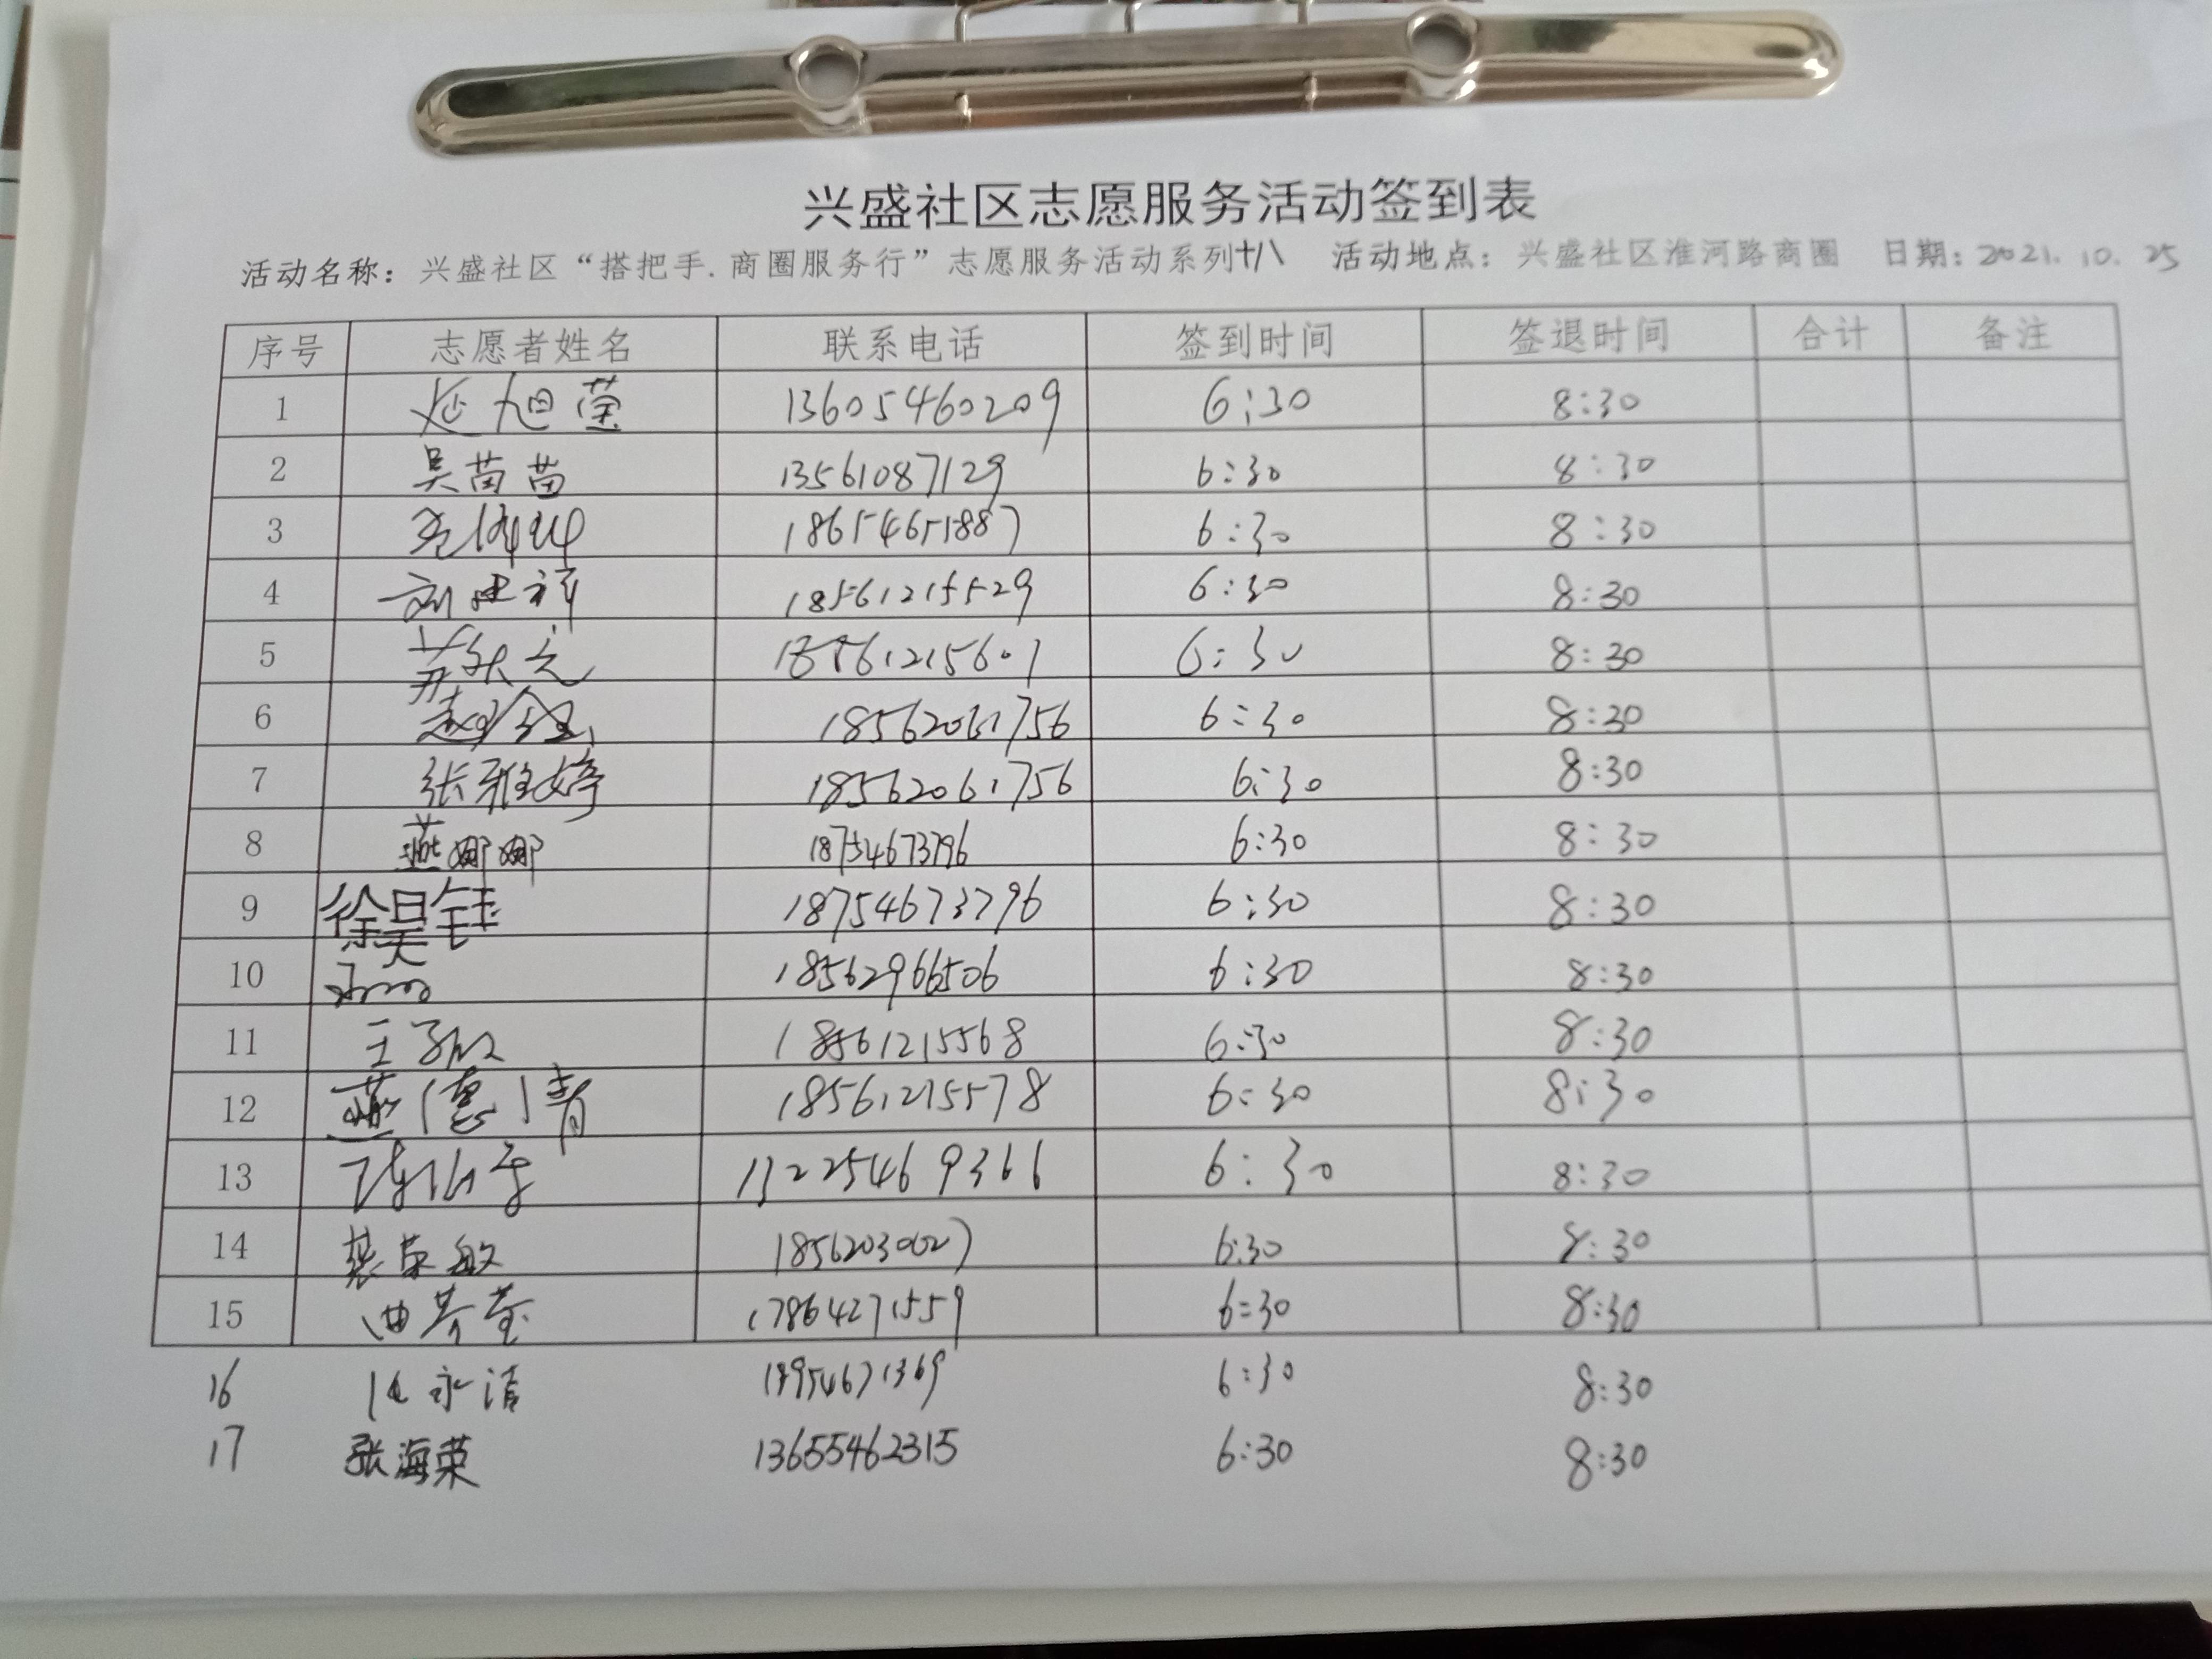 兴盛社区志愿服务活动签到表
活动名称：兴盛社区“搭把手.商圈服务行”志愿服务活动系列十八 活动地点：兴盛社区淮河路商圈 日期：2021.10.25
序号 志愿者姓名 联系电话 签到时间 签退时间 合计 备注
1 延旭莹 13605460209 6:30 8:30
2 吴苗苗 13561087129 6:30 8:30
3 18654651887 6:30 8:30
4 刘建祥 18561215529 6:30 8:30
5 18561215601 6:30 8:30
6 18562061756 6:30 8:30
7 张雅婷 18562061756 6:30 8:30
8 燕娜娜 18754673796 6:30 8:30
9 徐昊钰 18754673796 6:30 8:30
10 18562966506 6:30 8:30
11 王 18561215568 6:30 8:30
12 燕德清 18561215578 6:30 8:30
13 6:30 8:30
14 裴荣敏 6:30 8:30
15 曲 17864271559 6:30 8:30
16 永清 6:30 8:30
17 张海荣 13655462315 6:30 8:30